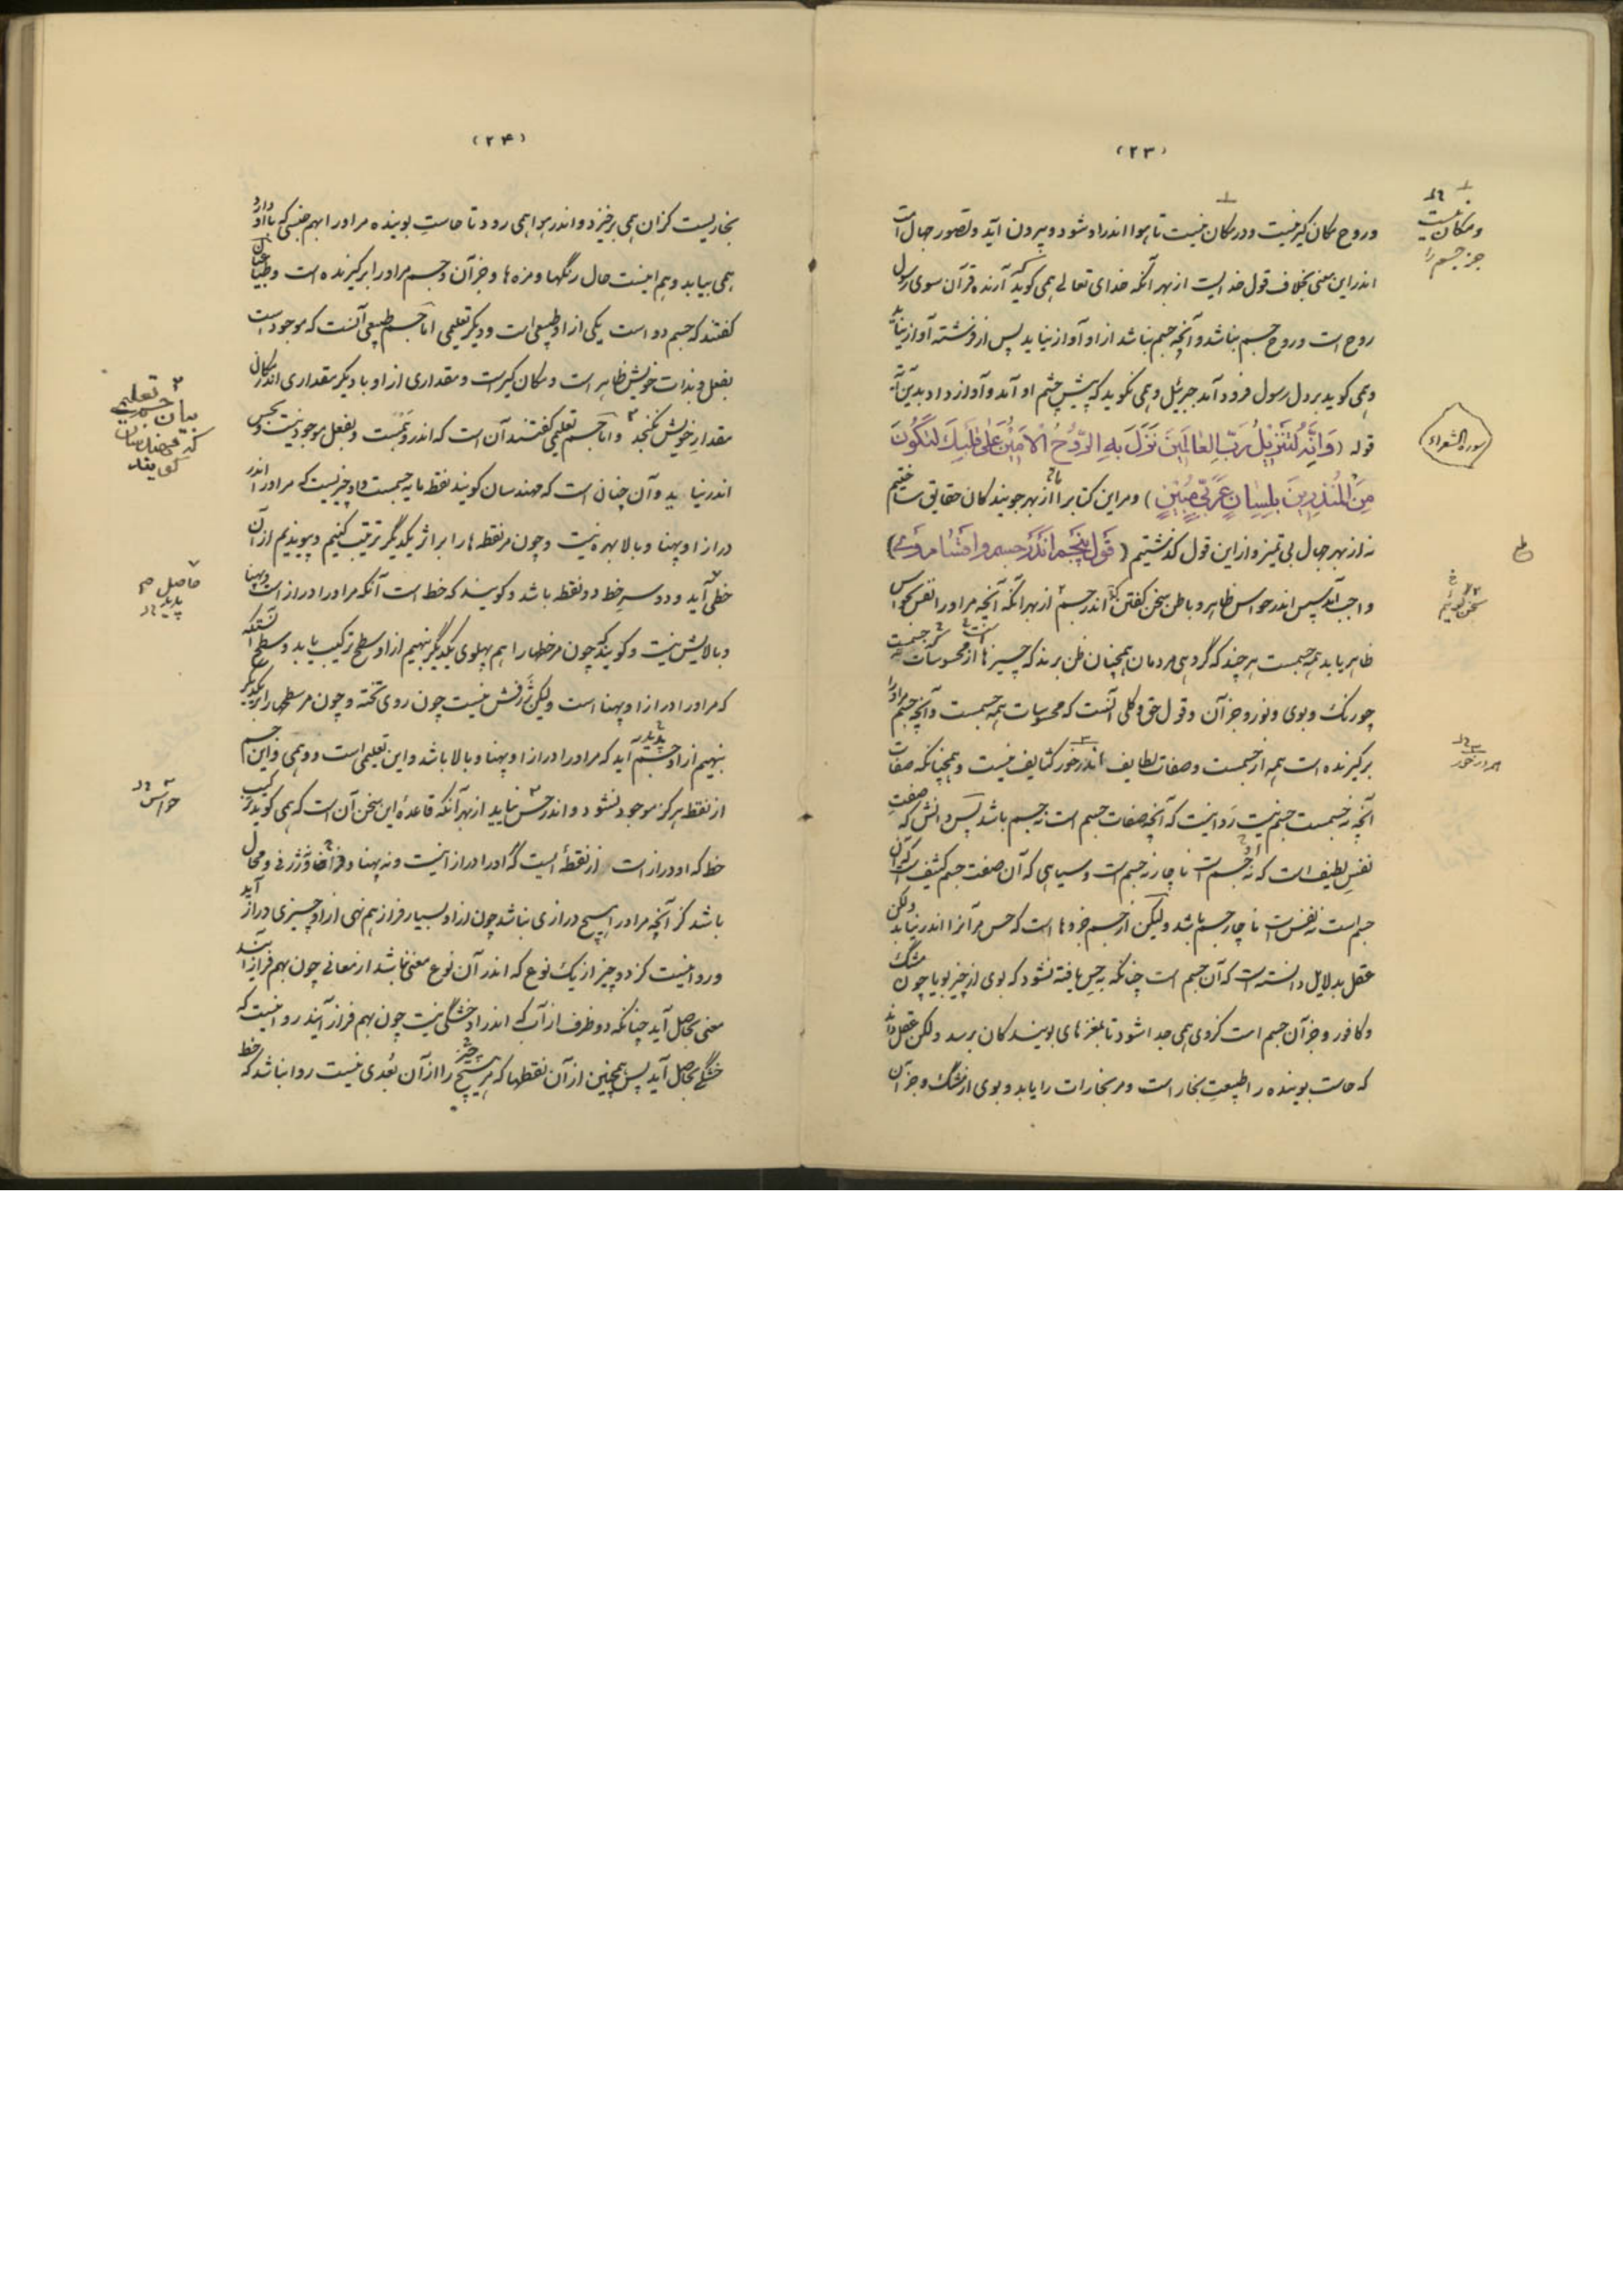 (۲۳)
وروح مکان گیر نیست و در مکان نیست تا هوا اندر او شود و بیرون آید و تصور جهال است
اندر این معنی بخلاف قول خدایست از بهر آنکه خدای تعالی همی گوید که آرنده قرآن سوی رسول
روح است و روح جسم نباشد و آنچه جسم نباشد از او آواز نیاید پس از فرشته آواز نیاید
و همی گوید بر دل رسول فرود آمد جبرئیل و همی نگوید که پیش چشم او آمد و آواز داد بدین آیه
قوله (وَاِنَّهُ لَتَنْزِیلُ رَبِّ الْعَالَمِینَ نَزَلَ بِهِ الرُّوحُ الْاَمِینُ عَلٰی قَلْبِکَ لِتَکُونَ
مِنَ الْمُنْذِرِینَ بِلِسَانٍ عَرَبِیٍّ مُبِینٍ) و مر این کتاب را ما از بهر جویندکان حقایق ساختیم
نه از بهر جهال بی تمیز و از این قول گذشتیم (قول پنجم اندر جسم و اقسام وی)
واجب آمد پس اندر حواس ظاهر و باطن سخن گفتن که اندر جسم از بهر آنکه آنچه مر او را نفس بحواس
ظاهر یابد همه جسمست هر چند که گروهی مردمان همچنان ظن برند که چیزها از محسوسات نه جسمست
چو رنک و بوی و نور و جز آن و قول حق و کلی آنست که محسوسات همه جسمست و آنچه جسم مر او را
بر گیرنده است همه از جسمست و صفات لطایف اندر خور کثایف نیست و همچنانکه صفات
آنچه نه جسمست جسم نیست روا نیست که آنچه صفات جسم است نه جسم باشد پس دانش که صفت
نفس لطیف است که نه جسم است ناچار نه جسم است و سیاهی که آن صفت جسم کثیف است که آن
جسم است نه نفس است ناچار جسم باشد ولیکن از جسم جزوها است که حس مر آنرا اندر نیابد ولکن
عقل بدلایل دانسته است که آن جسم است چنانکه بحس یافته نشود که بوی از چیز بویا چون مشک
و کافور و جز آن جسم است کز وی همی جدا شود تا بمغزهای بویندکان برسد ولکن عقل داند
که حاست بوینده را طبیعت بخار است و مر بخارات را یابد و بوی از مشک و جز آن
ومکان نیست
جز جسم را
سورة الشعراء
سخن گوئیم
اندر خور
(۲۴)
بخاریست کزان همی برخیزد و اندر هوا همی رود تا حاست بوینده مر او را بهم جنسی که با او دارد
همی بیابد و هم اینست حال رنگها و مزه ها و جز آن و جسم مر او را بر گیرنده است و طبیعیان
گفتند که جسم دو است یکی از او طبیعی است و دیگر تعلیمی اما جسم طبیعی آنست که موجود است
بفعل و بذات خویش ظاهر است و مکان گیر است و مقداری از او با دیگر مقداری اندر مکانی
مقدار خویش نگنجد و اما جسم تعلیمی گفتند آن است که اندر وهمست و بفعل موجود نیست و بحس
اندر نیاید و آن چنان است که مهندسان گویند نقطه مایه جسمست و او چیزیست که مر او را اندر
درازا و پهنا و بالا بهره نیست و چون مر نقطه ها را بر اثر یکدیگر ترتیب کنیم و پیوندیم از آن
خطی آید و دو سر خط دو نقطه باشد و گویند که خط است آنکه مر او را درازا است و پهنا
و بالایش نیست و گویند که چون مر خطها را هم پهلوی یکدیگر بنهیم از او سطح ترکیب یابد و سطح آنستکه
که مر او را درازا و پهنا است ولیکن ژرفش نیست چون روی تخته و چون مر سطحها را بر یکدیگر
بنهیم از او جسم پدید آید که مر او را درازا و پهنا و بالا باشد و این تعلیمی است و وهمی و این جسم
از نقطه هرگز موجود نشود و اندر حس نیاید از بهر آنکه قاعدهٔ این سخن آن است که همی گوید ترکیب
خط که او دراز است از نقطهٔ ایست که او را درازا نیست و نه پهنا و فراخا و ژرفی و محال
باشد کز آنچه مر او را هیچ درازی نباشد چون از او بسیار فراز هم نهی از او چیزی دراز آید
و روا نیست کز دو چیز از یک نوع که اندر آن نوع معنی نباشد از معانی چون بهم فراز آیند
معنی بحاصل آید چنانکه دو ظرف از آب که اندر او خشکی نیست چون بهم فراز آیند روا نیست که
خشکی بحاصل آید پس همچنین از آن نقطها که مر هیچ چیز را از آن بُعدی نیست روا نباشد که خط
بیان جسم تعلیمی
که مهندسان
گویند
حاصل
پدید
حواس